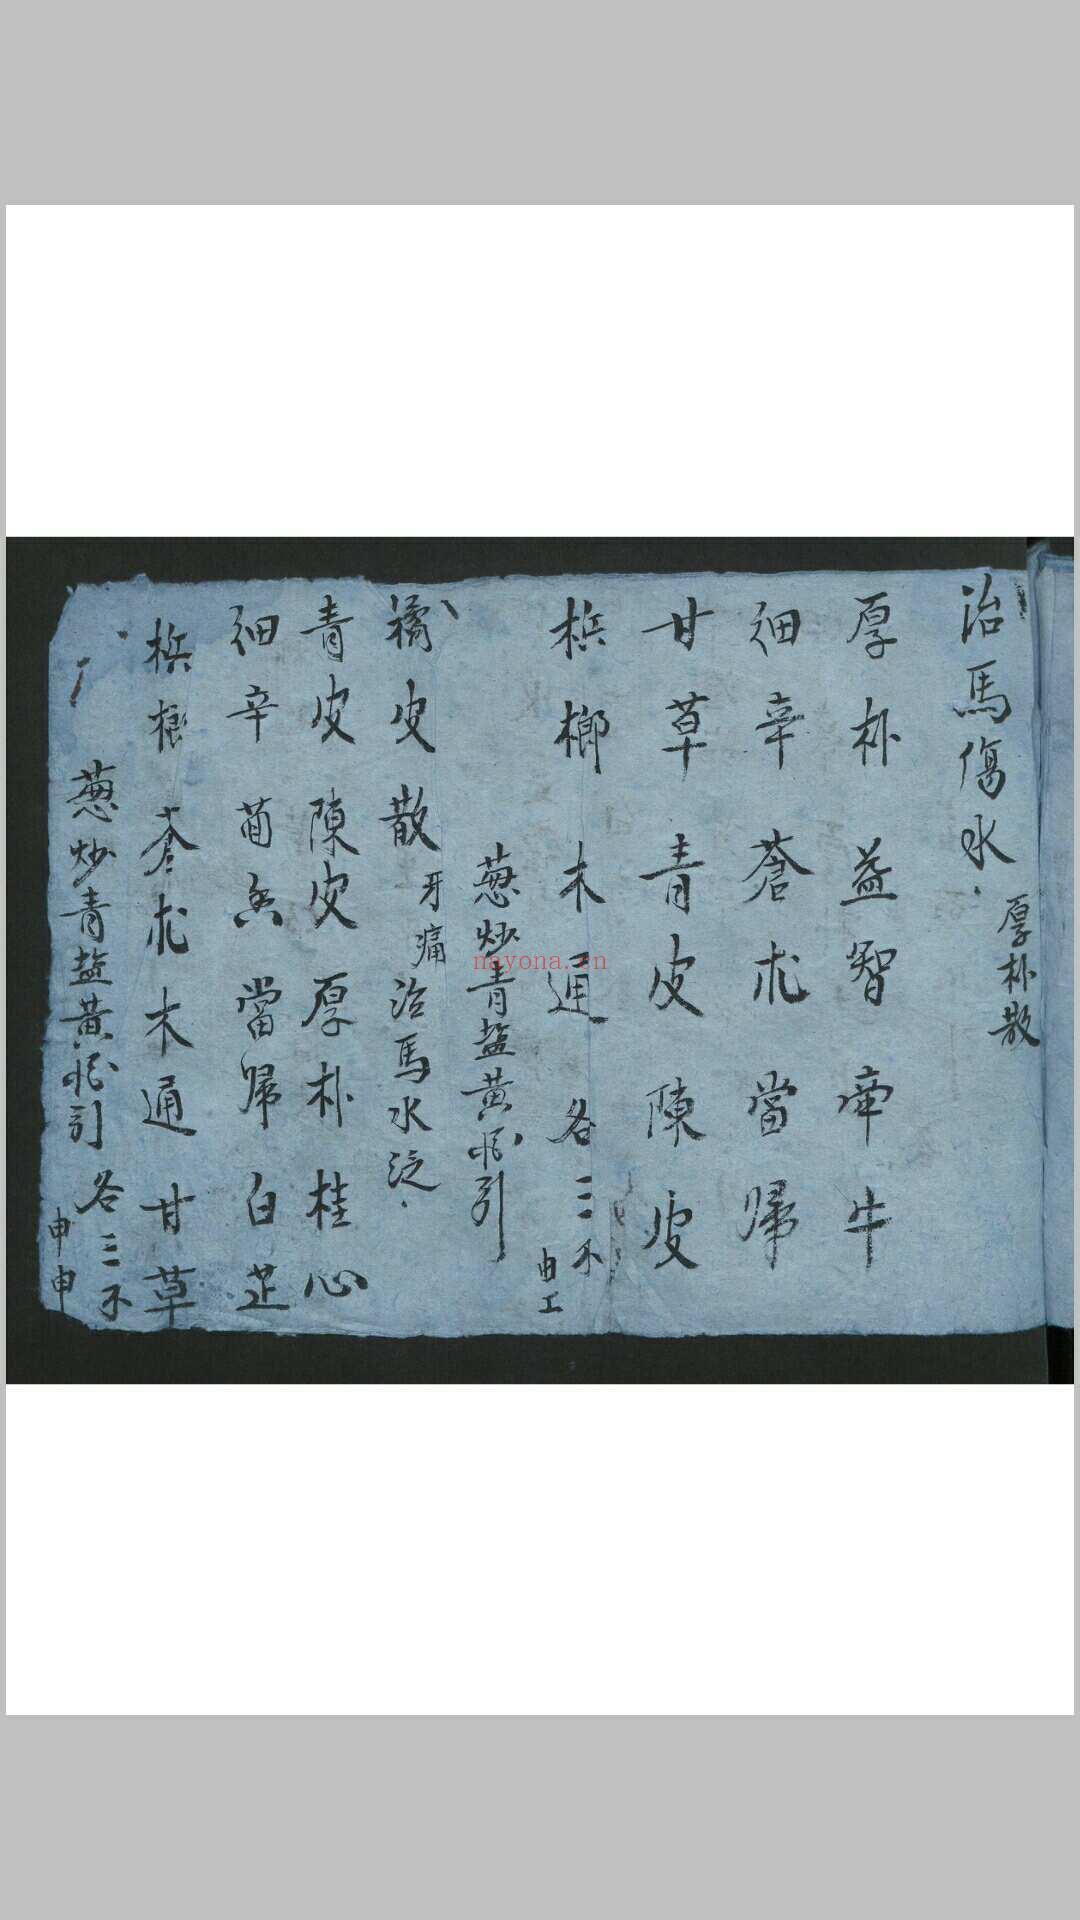 治馬傷水
厚朴散
厚朴 益智 牽牛
細辛 蒼朮 當歸
甘草 青皮 陳皮
梹榔 木通 各三不
由工
葱炒青盐黃酒引
橘皮散 牙痛 治馬水泛
青皮 陳皮 厚朴 桂心
細辛 茴香 當歸 白芷
梹榔 蒼朮 木通 甘草
各三不
葱炒青盐黃酒引
申申
nayona.cn